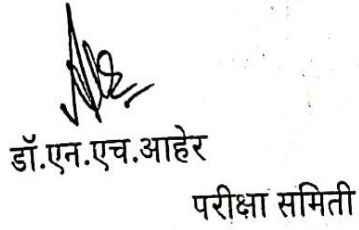 डॉ.एन.एच.आहेर
परीक्षा समिती